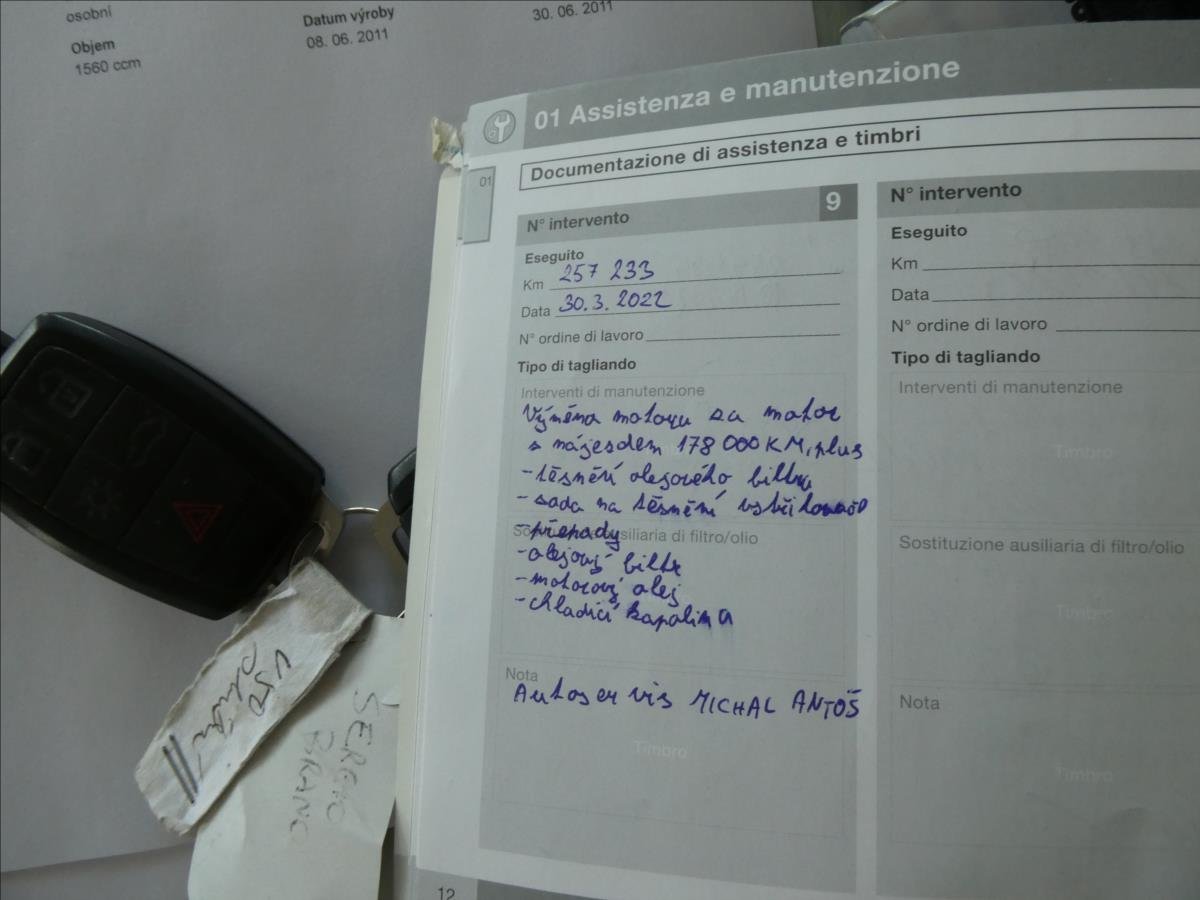 osobní
Objem
1560 ccm
Datum výroby
08. 06. 2011
30. 06. 2011
01 Assistenza e manutenzione
01
Documentazione di assistenza e timbri
N° intervento 9
Eseguito
Km 257 233
Data 30.3.2022
N° ordine di lavoro
Tipo di tagliando
Interventi di manutenzione
Výměna motoru za motor
s nájezdem 178 000 KM, plus
- těsnění olejového filtru
- sada na těsnění vstřikovačů
- přepady
Sostituzione ausiliaria di filtro/olio
- olejový filtr
- motorový olej
- chladící kapalina
Nota
Autoservis MICHAL ANTOŠ
Timbro
N° intervento
Eseguito
Km
Data
N° ordine di lavoro
Tipo di tagliando
Interventi di manutenzione
Timbro
Sostituzione ausiliaria di filtro/olio
Timbro
Nota
Timbro
12
V50
SERGIO